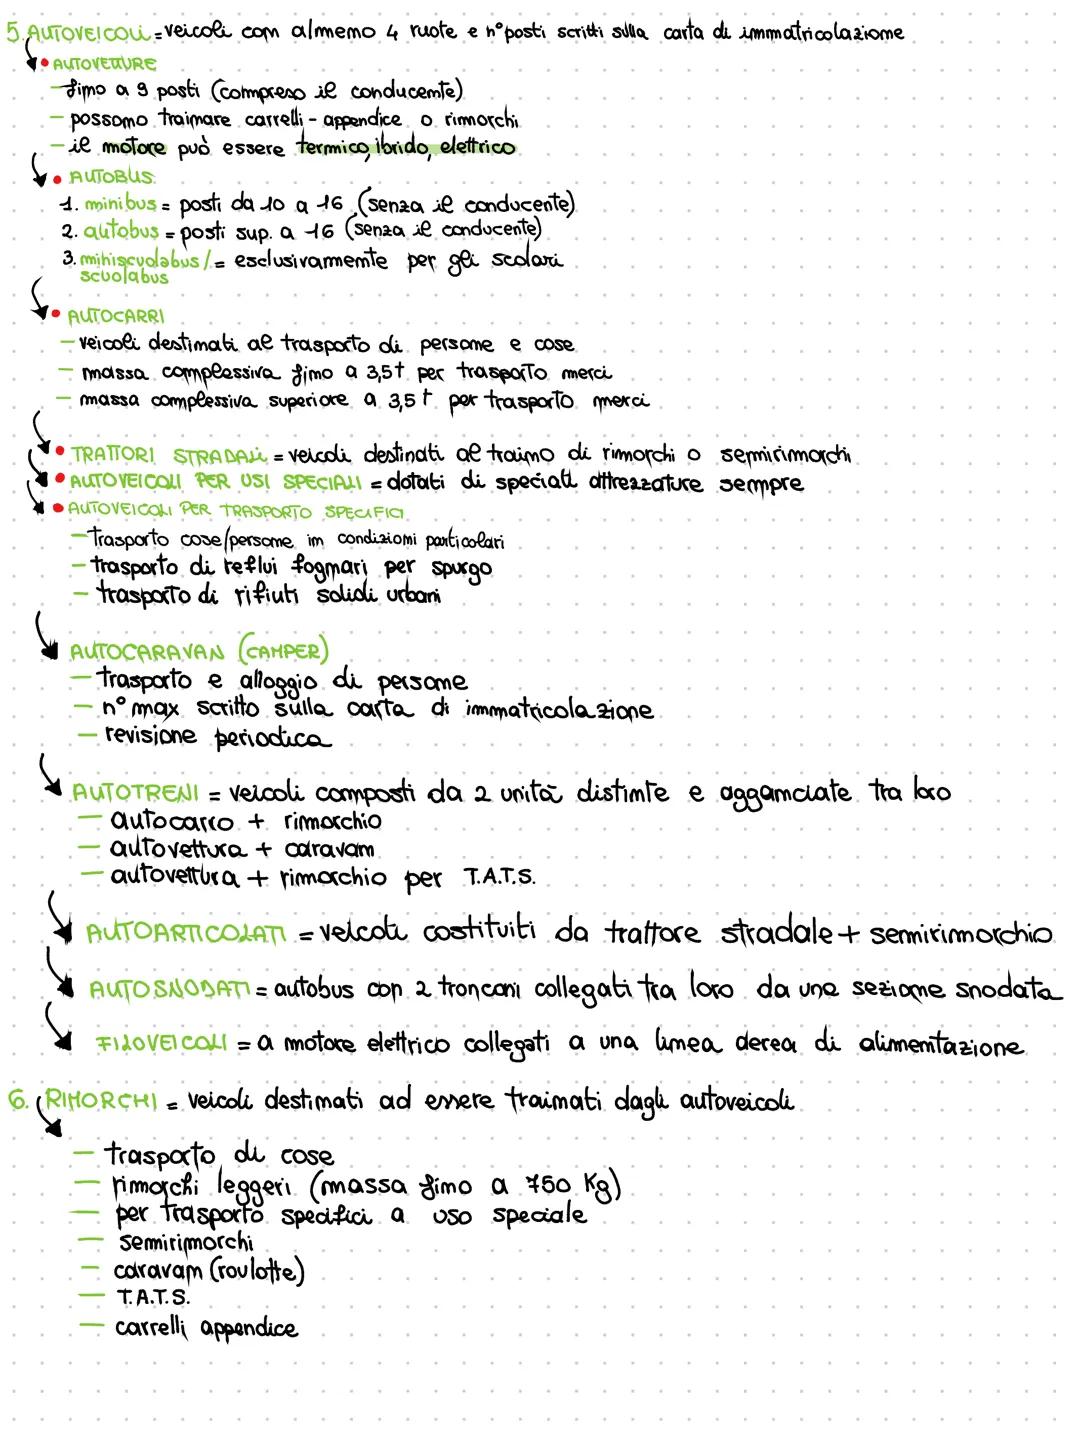 5. AUTOVEICOLI = veicoli con almeno 4 ruote e n° posti scritti sulla carta di immatricolazione
• AUTOVETTURE
- fino a 9 posti (compreso il conducente)
- possono trainare carrelli-appendice o rimorchi
- il motore può essere termico, ibrido, elettrico
• AUTOBUS
1. minibus = posti da 10 a 16 (senza il conducente)
2. autobus = posti sup. a 16 (senza il conducente)
3. miniscuolabus/ = esclusivamente per gli scolari
scuolabus
• AUTOCARRI
- veicoli destinati al trasporto di persone e cose
- massa complessiva fino a 3,5t per trasporto merci
- massa complessiva superiore a 3,5t per trasporto merci
• TRATTORI STRADALI = veicoli destinati al traino di rimorchi o semirimorchi
• AUTOVEICOLI PER USI SPECIALI = dotati di speciali attrezzature sempre
• AUTOVEICOLI PER TRASPORTO SPECIFICI
- trasporto cose/persone in condizioni particolari
- trasporto di reflui fognari per spurgo
- trasporto di rifiuti solidi urbani
AUTOCARAVAN (CAMPER)
- trasporto e alloggio di persone
- n° max scritto sulla carta di immatricolazione
- revisione periodica
AUTOTRENI = veicoli composti da 2 unità distinte e agganciate tra loro
- autocarro + rimorchio
- autovettura + caravan
- autovettura + rimorchio per T.A.T.S.
AUTOARTICOLATI = veicoli costituiti da trattore stradale + semirimorchio
AUTOSNODATI = autobus con 2 tronconi collegati tra loro da una sezione snodata
FILOVEICOLI = a motore elettrico collegati a una linea aerea di alimentazione
6. RIMORCHI = veicoli destinati ad essere trainati dagli autoveicoli
- trasporto di cose
- rimorchi leggeri (massa fino a 750 Kg)
- per trasporto specifici a uso speciale
- semirimorchi
- caravan (roulotte)
- T.A.T.S.
- carrelli appendice